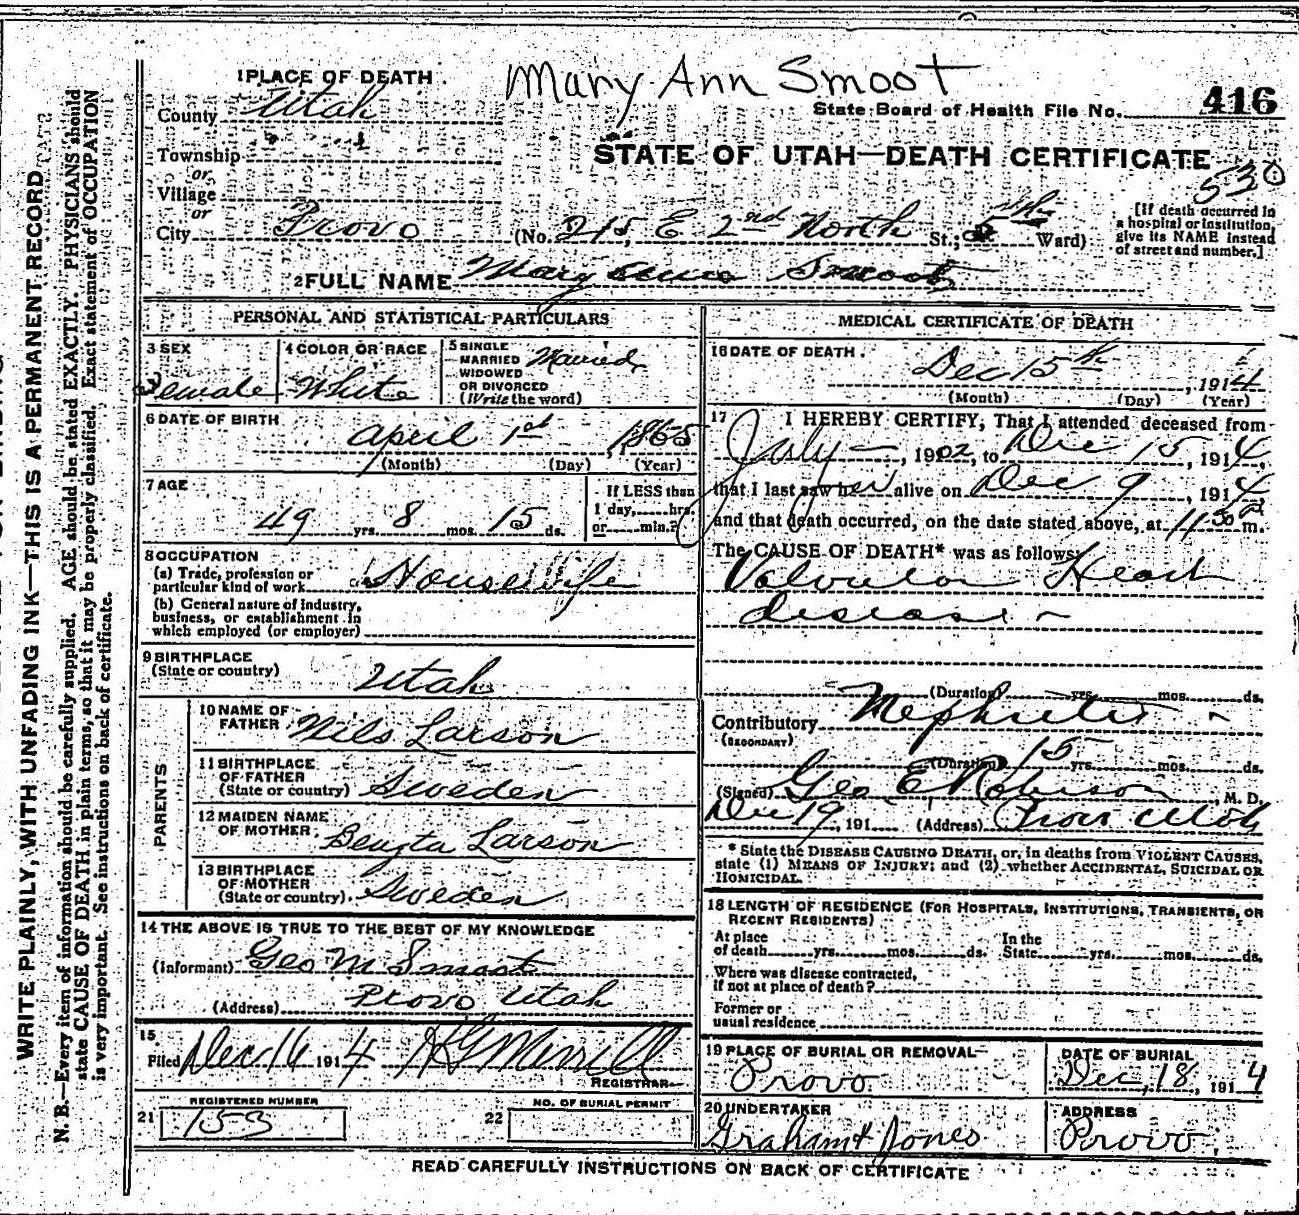 Mary Ann Smoot
1 PLACE OF DEATH
County Utah
State Board of Health File No. 416
STATE OF UTAH—DEATH CERTIFICATE
530
Township
or
Village
or
City Provo (No. 215, E 2nd North St.; 5th Ward)
[If death occurred in a hospital or institution, give its NAME instead of street and number.]
2 FULL NAME Mary Smoot
PERSONAL AND STATISTICAL PARTICULARS
3 SEX
Female
4 COLOR OR RACE
White
5 SINGLE
MARRIED
WIDOWED
OR DIVORCED
(Write the word)
Married
6 DATE OF BIRTH
April 1st, 1865
(Month) (Day) (Year)
7 AGE
49 yrs. 8 mos. 15 ds.
If LESS than
1 day, hrs.
or min.?
8 OCCUPATION
(a) Trade, profession or
particular kind of work Housewife
(b) General nature of industry,
business, or establishment in
which employed (or employer)
9 BIRTHPLACE
(State or country) Utah
PARENTS
10 NAME OF
FATHER Nils Larson
11 BIRTHPLACE
OF FATHER
(State or country) Sweden
12 MAIDEN NAME
OF MOTHER Bengta Larson
13 BIRTHPLACE
OF MOTHER
(State or country) Sweden
14 THE ABOVE IS TRUE TO THE BEST OF MY KNOWLEDGE
(Informant) Geo M Smoot
(Address) Provo Utah
15
Filed Dec 16 1914 H G Merrill
REGISTRAR
21 REGISTERED NUMBER
153
22 NO. OF BURIAL PERMIT
MEDICAL CERTIFICATE OF DEATH
16 DATE OF DEATH
Dec 15th, 1914
(Month) (Day) (Year)
17 I HEREBY CERTIFY, That I attended deceased from
July —, 1902, to Dec 15, 1914,
that I last saw her alive on Dec 9, 1914,
and that death occurred, on the date stated above, at 11:30 m.
The CAUSE OF DEATH* was as follows:
Valvular Heart
disease -
(Duration) yrs. mos. ds.
Contributory Nephritis -
(SECONDARY)
(Duration) 15 yrs. mos. ds.
(Signed) Geo E Robison, M. D.
Dec 19, 191 (Address) Provo Utah
* State the DISEASE CAUSING DEATH, or, in deaths from VIOLENT CAUSES,
state (1) MEANS OF INJURY; and (2) whether ACCIDENTAL, SUICIDAL OR
HOMICIDAL.
18 LENGTH OF RESIDENCE (FOR HOSPITALS, INSTITUTIONS, TRANSIENTS, OR
RECENT RESIDENTS)
At place
of death yrs. mos. ds.
In the
State yrs. mos. ds.
Where was disease contracted,
if not at place of death?
Former or
usual residence
19 PLACE OF BURIAL OR REMOVAL
Provo
DATE OF BURIAL
Dec, 18, 1914
20 UNDERTAKER
Graham & Jones
ADDRESS
Provo
READ CAREFULLY INSTRUCTIONS ON BACK OF CERTIFICATE
WRITE PLAINLY, WITH UNFADING INK—THIS IS A PERMANENT RECORD
N. B.—Every item of information should be carefully supplied. AGE should be stated EXACTLY. PHYSICIANS should
state CAUSE OF DEATH in plain terms, so that it may be properly classified. Exact statement of OCCUPATION
is very important. See instructions on back of certificate.